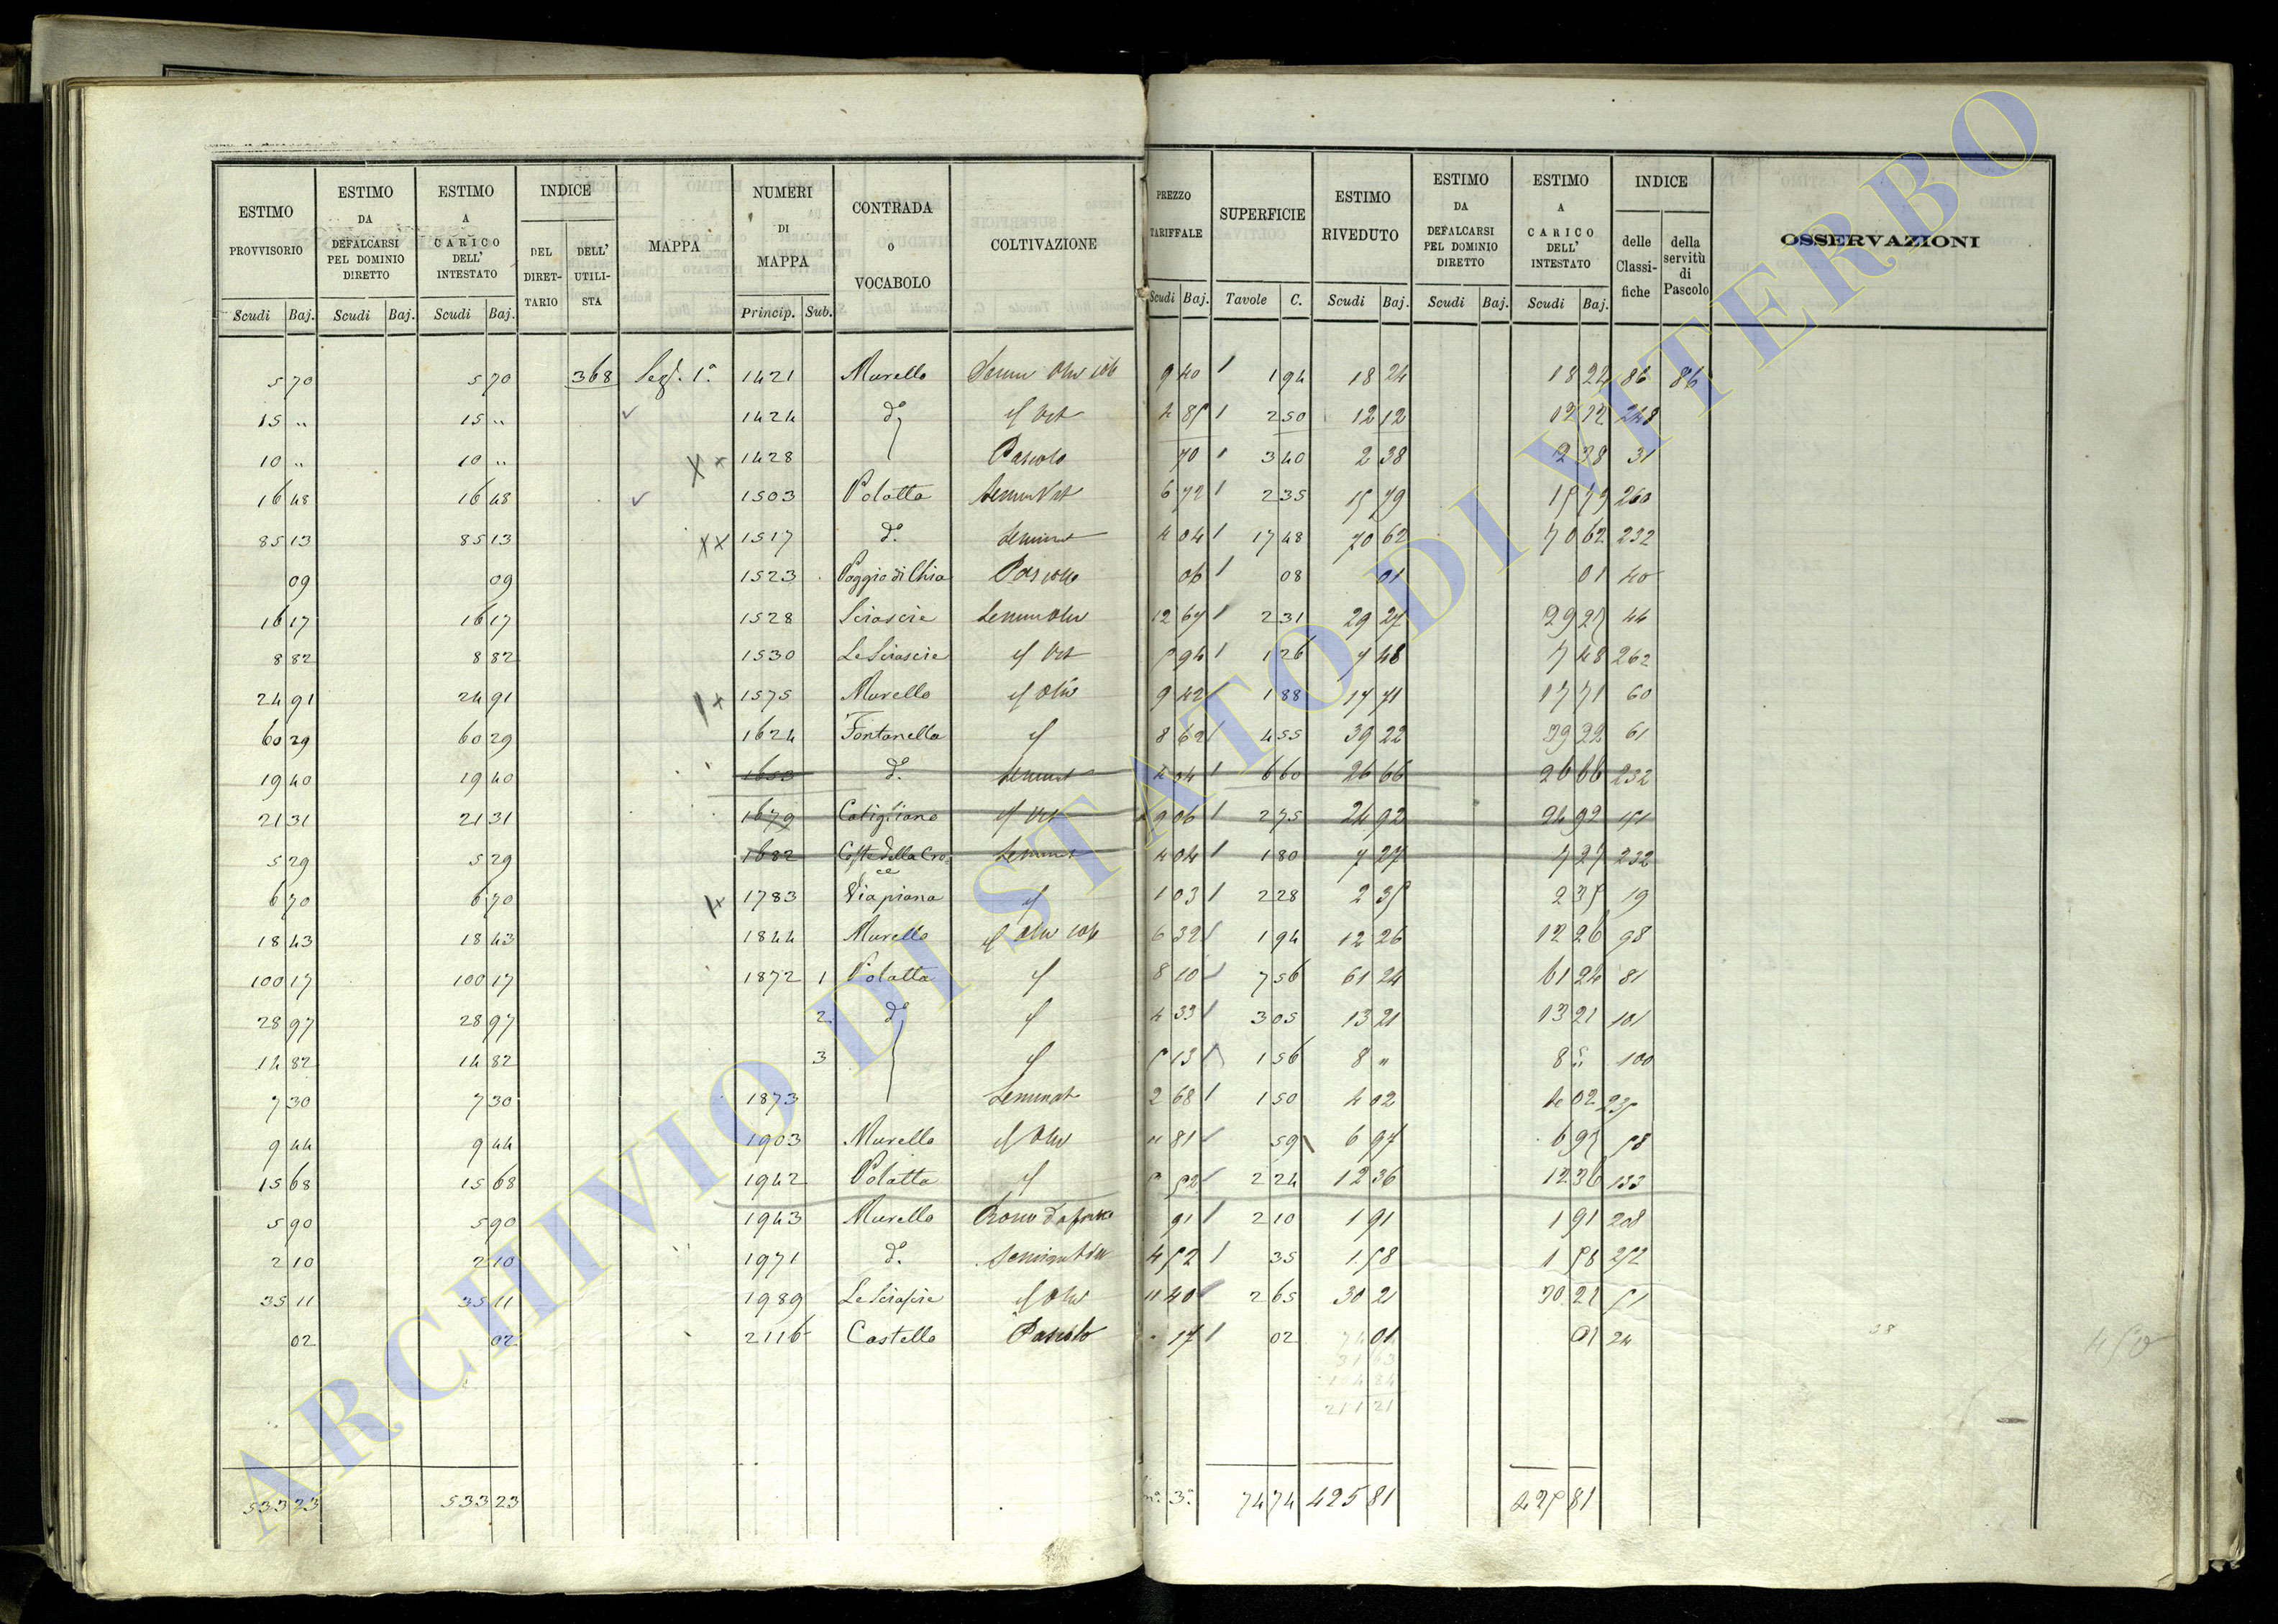 ESTIMO PROVVISORIO | ESTIMO DA DEFALCARSI PEL DOMINIO DIRETTO | ESTIMO A CARICO DELL' INTESTATO | INDICE DEL DIRETTARIO | DELL' UTILISTA | MAPPA | NUMERI DI MAPPA | CONTRADA O VOCABOLO | COLTIVAZIONE | PREZZO TARIFFALE | SUPERFICIE | ESTIMO RIVEDUTO | ESTIMO DA DEFALCARSI PEL DOMINIO DIRETTO | ESTIMO A CARICO DELL' INTESTATO | INDICE delle Classifiche | della servitù di Pascolo | OSSERVAZIONI
Scudi Baj. | Scudi Baj. | Scudi Baj. | Princip. Sub. | Scudi Baj. | Tavole C. | Scudi Baj. | Scudi Baj. | Scudi Baj.
5 70 | 5 70 | 368 | 1421 | Murello | 9 40 | 1 94 | 18 24 | 18 24 | 86 | 86
15 " | 15 " | 1424 | d° | 4 85 | 2 50 | 12 12 | 12 12 | 248
10 " | 10 " | 1428 | Pascolo | 70 | 3 40 | 2 38 | 2 38 | 31
16 48 | 16 48 | 1503 | Polatta | 6 72 | 2 35 | 15 79 | 15 79 | 260
85 13 | 85 13 | 1517 | d° | 4 04 | 17 48 | 70 62 | 70 62 | 232
09 | 09 | 1523 | Poggio di Chia | Pascolo | 06 | 08 | 01 | 01 | 40
16 17 | 16 17 | 1528 | Sciascie | 12 67 | 2 31 | 29 27 | 29 27 | 44
8 82 | 8 82 | 1530 | Le Sciascie | 5 94 | 1 26 | 7 48 | 7 48 | 262
24 91 | 24 91 | 1575 | Murello | 9 42 | 1 88 | 17 71 | 17 71 | 60
60 29 | 60 29 | 1624 | Fontanella | 8 62 | 4 55 | 39 22 | 39 22 | 61
19 40 | 19 40 | d° | 4 04 | 6 60 | 26 66 | 26 66 | 232
21 31 | 21 31 | 1679 | Catigliano | 9 06 | 2 75 | 24 92 | 24 92
5 29 | 5 29 | 1682 | Coste della Croce | 4 04 | 1 80 | 7 27 | 7 27 | 232
6 70 | 6 70 | 1783 | Viapiana | 1 03 | 2 28 | 2 35 | 2 35 | 19
18 43 | 18 43 | 1844 | Murello | 6 32 | 1 94 | 12 26 | 12 26 | 98
100 17 | 100 17 | 1872 1 | Polatta | 8 10 | 7 56 | 61 24 | 61 24 | 81
28 97 | 28 97 | 2 | d° | 4 33 | 3 05 | 13 21 | 13 21 | 101
14 82 | 14 82 | 3 | 5 13 | 1 56 | 8 " | 8 " | 100
7 30 | 7 30 | 1873 | Seminat | 2 68 | 1 50 | 4 02 | 4 02 | 235
9 44 | 9 44 | 1903 | Murello | 11 81 | 59 | 6 97 | 6 97 | 58
15 68 | 15 68 | 1942 | Polatta | 5 52 | 2 24 | 12 36 | 12 36 | 133
5 90 | 5 90 | 1943 | Murello | 91 | 2 10 | 1 91 | 1 91 | 208
2 10 | 2 10 | 1971 | d° | 4 52 | 35 | 1 58 | 1 58 | 252
35 11 | 35 11 | 1989 | Le Sciascie | 11 40 | 2 65 | 30 21 | 30 21 | 51
02 | 02 | 2116 | Castello | Pascolo | 17 | 02 | 01 | 01 | 24
533 23 | 533 23 | 74 74 | 425 81 | 425 81
ARCHIVIO DI STATO DI VITERBO